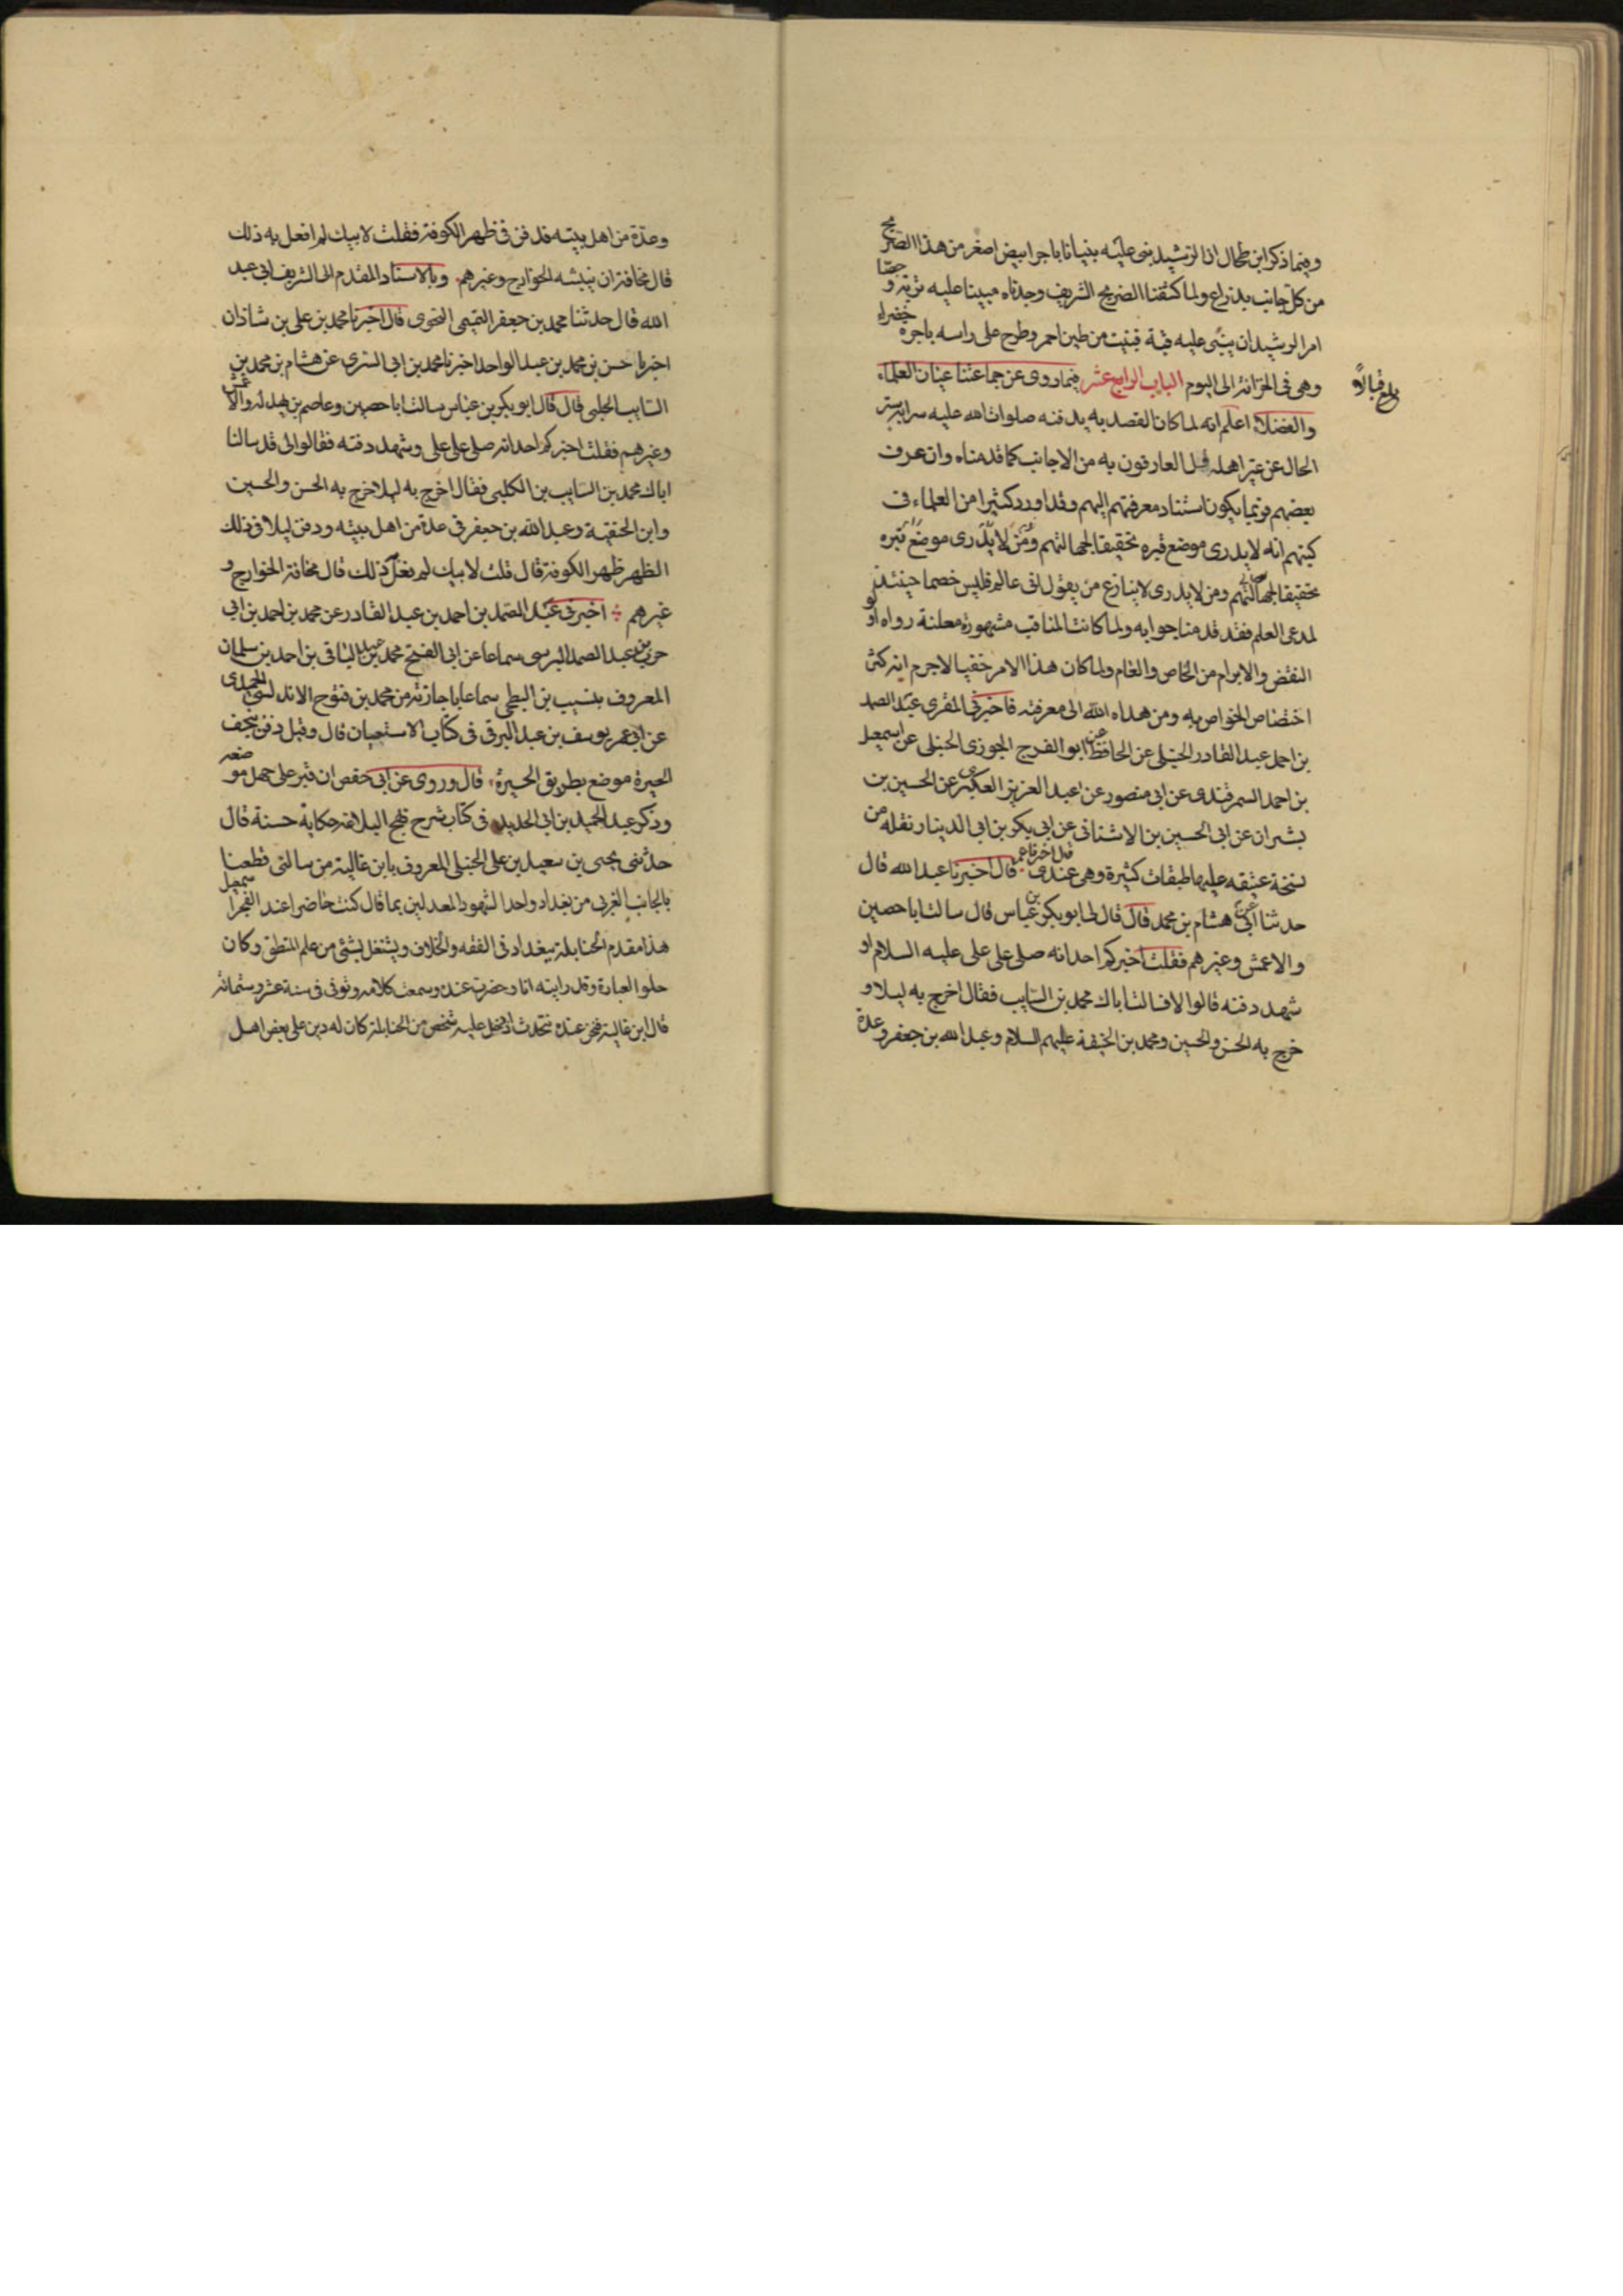 وفيما ذكر ابن طحال ان الرشيد بنى عليه بنيانا باجر ابيض اصغر من هذا الضريح
من كل جانب بذراع ولما كشفنا الضريح الشريف وجدناه مبنيا عليه تربة وجصا
امر الرشيد ان يبنى عليه قبة فبنيت من طين احمر وطرح على راسه باجرة خضراء
وهي في الخزانة الى اليوم الباب الرابع عشر فيما روى عن جماعتنا عيان العلماء
بلغ قبالا
والفضلا اعلم انه لما كان القصد به بدفنه صلوات الله عليه سرا ليستر
الحال عن غير اهله قل العارفون به من الاجانب كما قدمناه وان عرف
بعضهم فربما يكون استناد معرفتهم اليهم وقد اورد كثيرا من العلماء في
كتبهم انه لا يدرى موضع قبره تحقيقا لجهالتهم ومن لا يدرى موضع قبره
تحقيقا لجهالتهم ومن لا يدرى لا ينازع من يقول انى عالم فليس خصما حينئذ
لمدعى العلم فقد قدمنا جوابه ولما كانت المناقب مشهورة معلنة رواه اولو
النقض والابرام من الخاص والعام ولما كان هذا الامر خفيا لاجرم انه كثر
اختصاص الخواص به ومن هداه الله الى معرفته فاخبرنى المقرى عبد الصمد
بن احمد عبد القادر الحنبلى عن الحافظ عن ابو الفرج الجوزى الحنبلى عن اسمعيل
بن احمد السمرقندى عن ابى منصور عن عبد العزيز العكبرى عن الحسين بن
بشران عن ابى الحسين بن الاشنانى عن ابى بكر بن ابى الدينار نقله من
نسخة عتيقه عليها طبقات كثيرة وهى عندى قال اخبرنا عبد الله قال
حدثنا ابى عن هشام بن محمد قال قال لى ابو بكر بن عياس قال سالت ابا حصين
والاعمش وغيرهم فقلت اخبركم احد انه صلى على على عليه السلام او
شهد دفنه قالوا لا فسالت اباك محمد بن السايب فقال اخرج به ليلا و
خرج به الحسن والحسين ومحمد بن الحنيفة عليهم السلام وعبد الله بن جعفر وعدة
وعدة من اهل بيته فدفن فى ظهر الكوفة فقلت لابيك لم افعل به ذلك
قال مخافة ان ينبشه الخوارج وغيرهم وبالاسناد المقدم الى الشريف ابى عبد
الله قال حدثنا محمد بن جعفر التميمى النحوى قال اخبرنا محمد بن على بن شاذان
اخبرنا حسن بن محمد بن عبد الواحد اخبرنا محمد بن ابى السرى عن هشام بن محمد بن
السايب الحلبى قال قال ابو بكر بن عياس سالت ابا حصين وعاصم بن بهدله والاعمش
وغيرهم فقلت اخبركم احد انه صلى على على وشهد دفنه فقالوا لى قد سالنا
اباك محمد بن السايب بن الكلبى فقال اخرج به ليلا خرج به الحسن والحسين
وابن الحنفية وعبد الله بن جعفر فى عدة من اهل بيته ودفن ليلا فى ذلك
الظهر ظهر الكوفة قال قلت لابيك لم يفعل ذلك قال مخافة الخوارج و
غيرهم اخبرنى عبد الصمد بن احمد بن عبد القادر عن محمد بن احمد بن ابى
حرب بن عبد الصمد البرسى سماعا عن ابى الفتح محمد بن عبد الباقى بن احمد بن سلمان
المعروف بنسيب بن البطى سماعا باجازته من محمد بن فتوح الاندلسى الحميدى
عن ابى عمر يوسف بن عبد البرقى فى كتاب الاستيعاب قال وقيل دفن بنجف
الحيرة موضع بطريق الحيرة قال وروى عن ابى حفص ان قبر على جهل موضعه
وذكر عبد الحميد بن ابى الحديد فى كتاب شرح نهج البلاغة حكاية حسنة قال
حدثنى يحيى بن سعيد بن على الحنبلى المعروف بابن عالية من سالنى قطعنا
بالجانب الغربى من بغداد واحدا لشهود المعدلين بما قال كنت حاضرا عند الفخر اسمعيل
هذا مقدم الحنابلة ببغداد فى الفقه والخلاف ويشتغل بشئ من علم المنطق وكان
حلو العبارة وقد رايته انا وحضرت عنده وسمعت كلامه وتوفى فى سنة عشر وستمائه
قال ابن عالية فنحن عنده نتحدث اذ دخل عليه شخص من الحنابلة كان له دين على بعض اهل